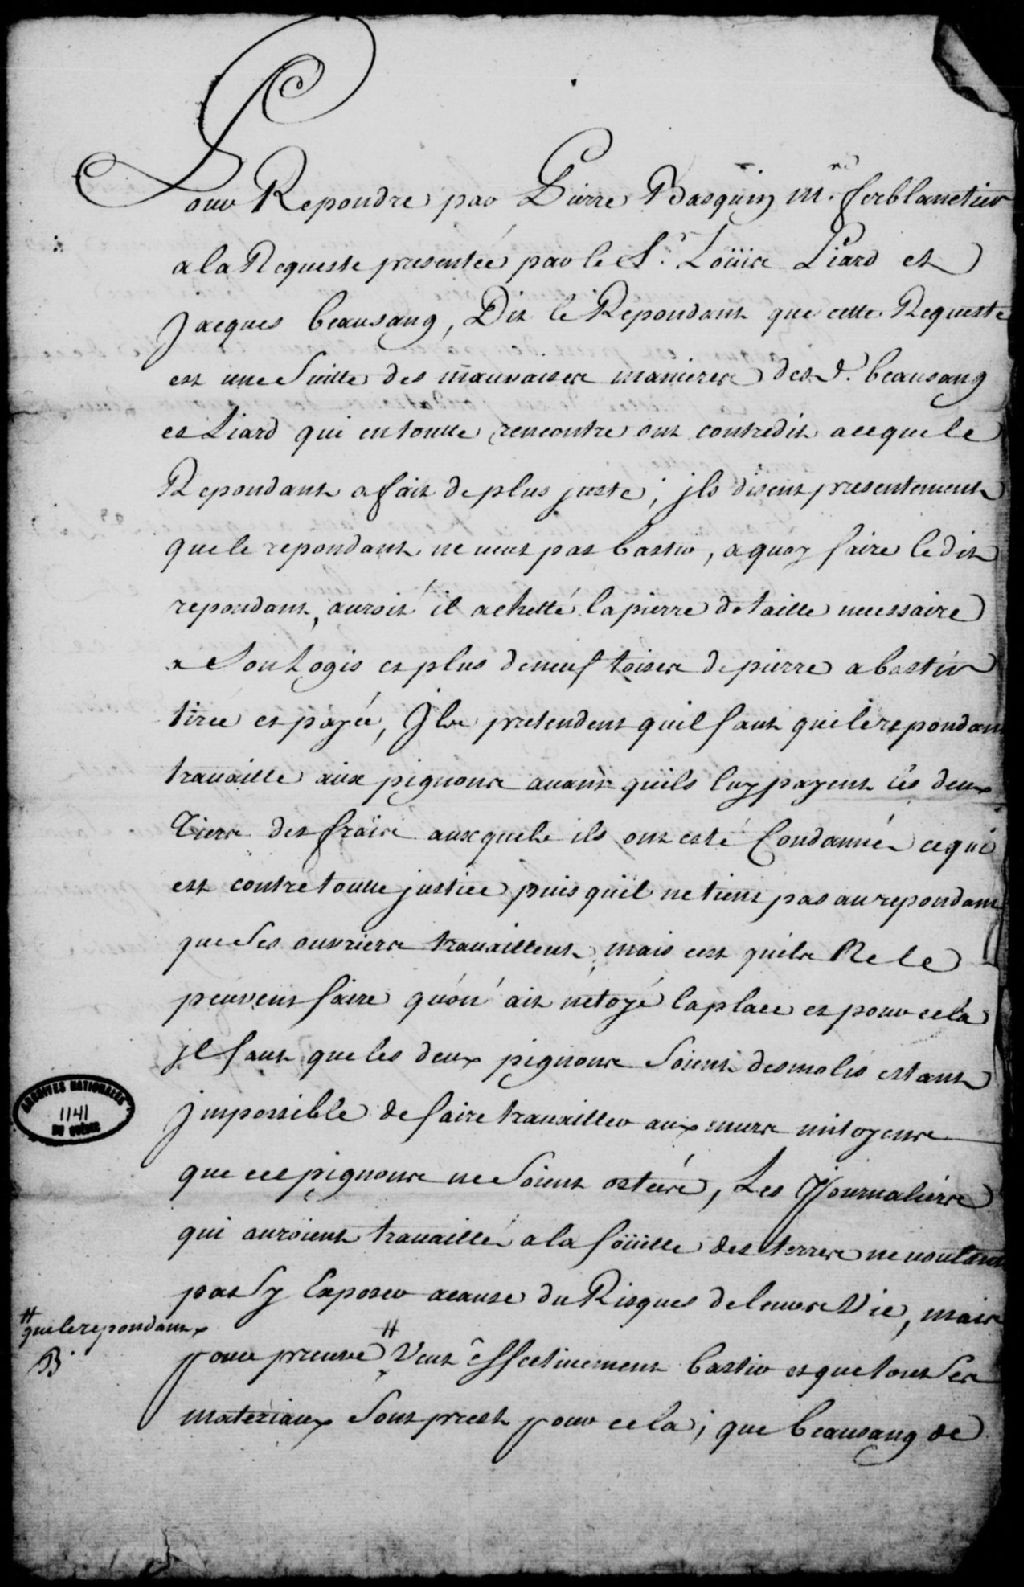 Pour Repondre par Pierre Basquin m.re ferblanctier
a la Requeste presentée par le S.r Loüis Liard et
Jacques beausang, Dit le Repondant que cette Requeste
est une Suitte des mauvaises manieres des d. beausang
et Liard qui en toutte rencontre ont contredit a ce que le
Repondant a fait de plus juste; jls disent presentement
que le repondant ne veut pas bastir, a quoy faire le dit
repondant, auroit il achetté la pierre de taille necessaire
a Son Logis et plus de neuf toises de pierre a bastir
tirée et payée, Jls pretendent quil faut que le repondant
travaille aux pignons avant quils luy payent les deux
Tiers des frais auxquels ils ont esté Condamné ce qui
est contre toutte justice puis quil ne tient pas au repondant
que Ses ouvriers travaillent, mais cest quils Ne le
peuvent faire quon ait netoyé la place et pour cela
jl faut que les deux pignons Soient desmolis estant
jmpossible de faire travailler aux murs mitoyens
que ces pignons ne Soient ostéré, Les Journaliers
qui auroient travaillé a la foüille des terres ne voulant
pas Sy Exposer a cause du Risques de leurs Vie, mais
pour preuve # Veut Effectivement bastir et que tout Ses
# que le repondant
B.
materiaux Sont prest pour cela; que beausang de
ARCHIVES NATIONALES
1141
DU QUÉBEC